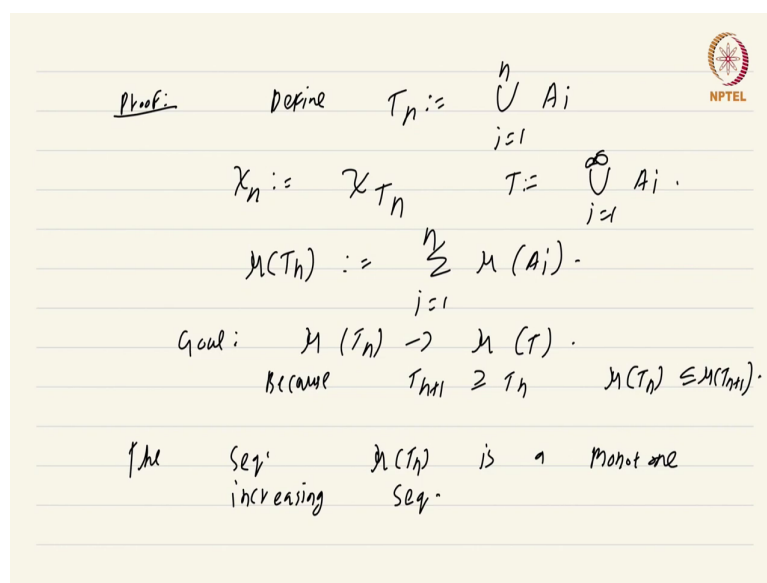 NPTEL
Proof: Define Tₙ := ⋃ᵢ₌₁ⁿ Aᵢ
χₙ := χ_Tₙ T := ⋃ᵢ₌₁^∞ Aᵢ.
μ(Tₙ) := ∑ᵢ₌₁ⁿ μ(Aᵢ).
Goal: μ(Tₙ) → μ(T).
Because Tₙ₊₁ ⊇ Tₙ μ(Tₙ) ≤ μ(Tₙ₊₁).
The seq. μ(Tₙ) is a monotone
increasing seq.